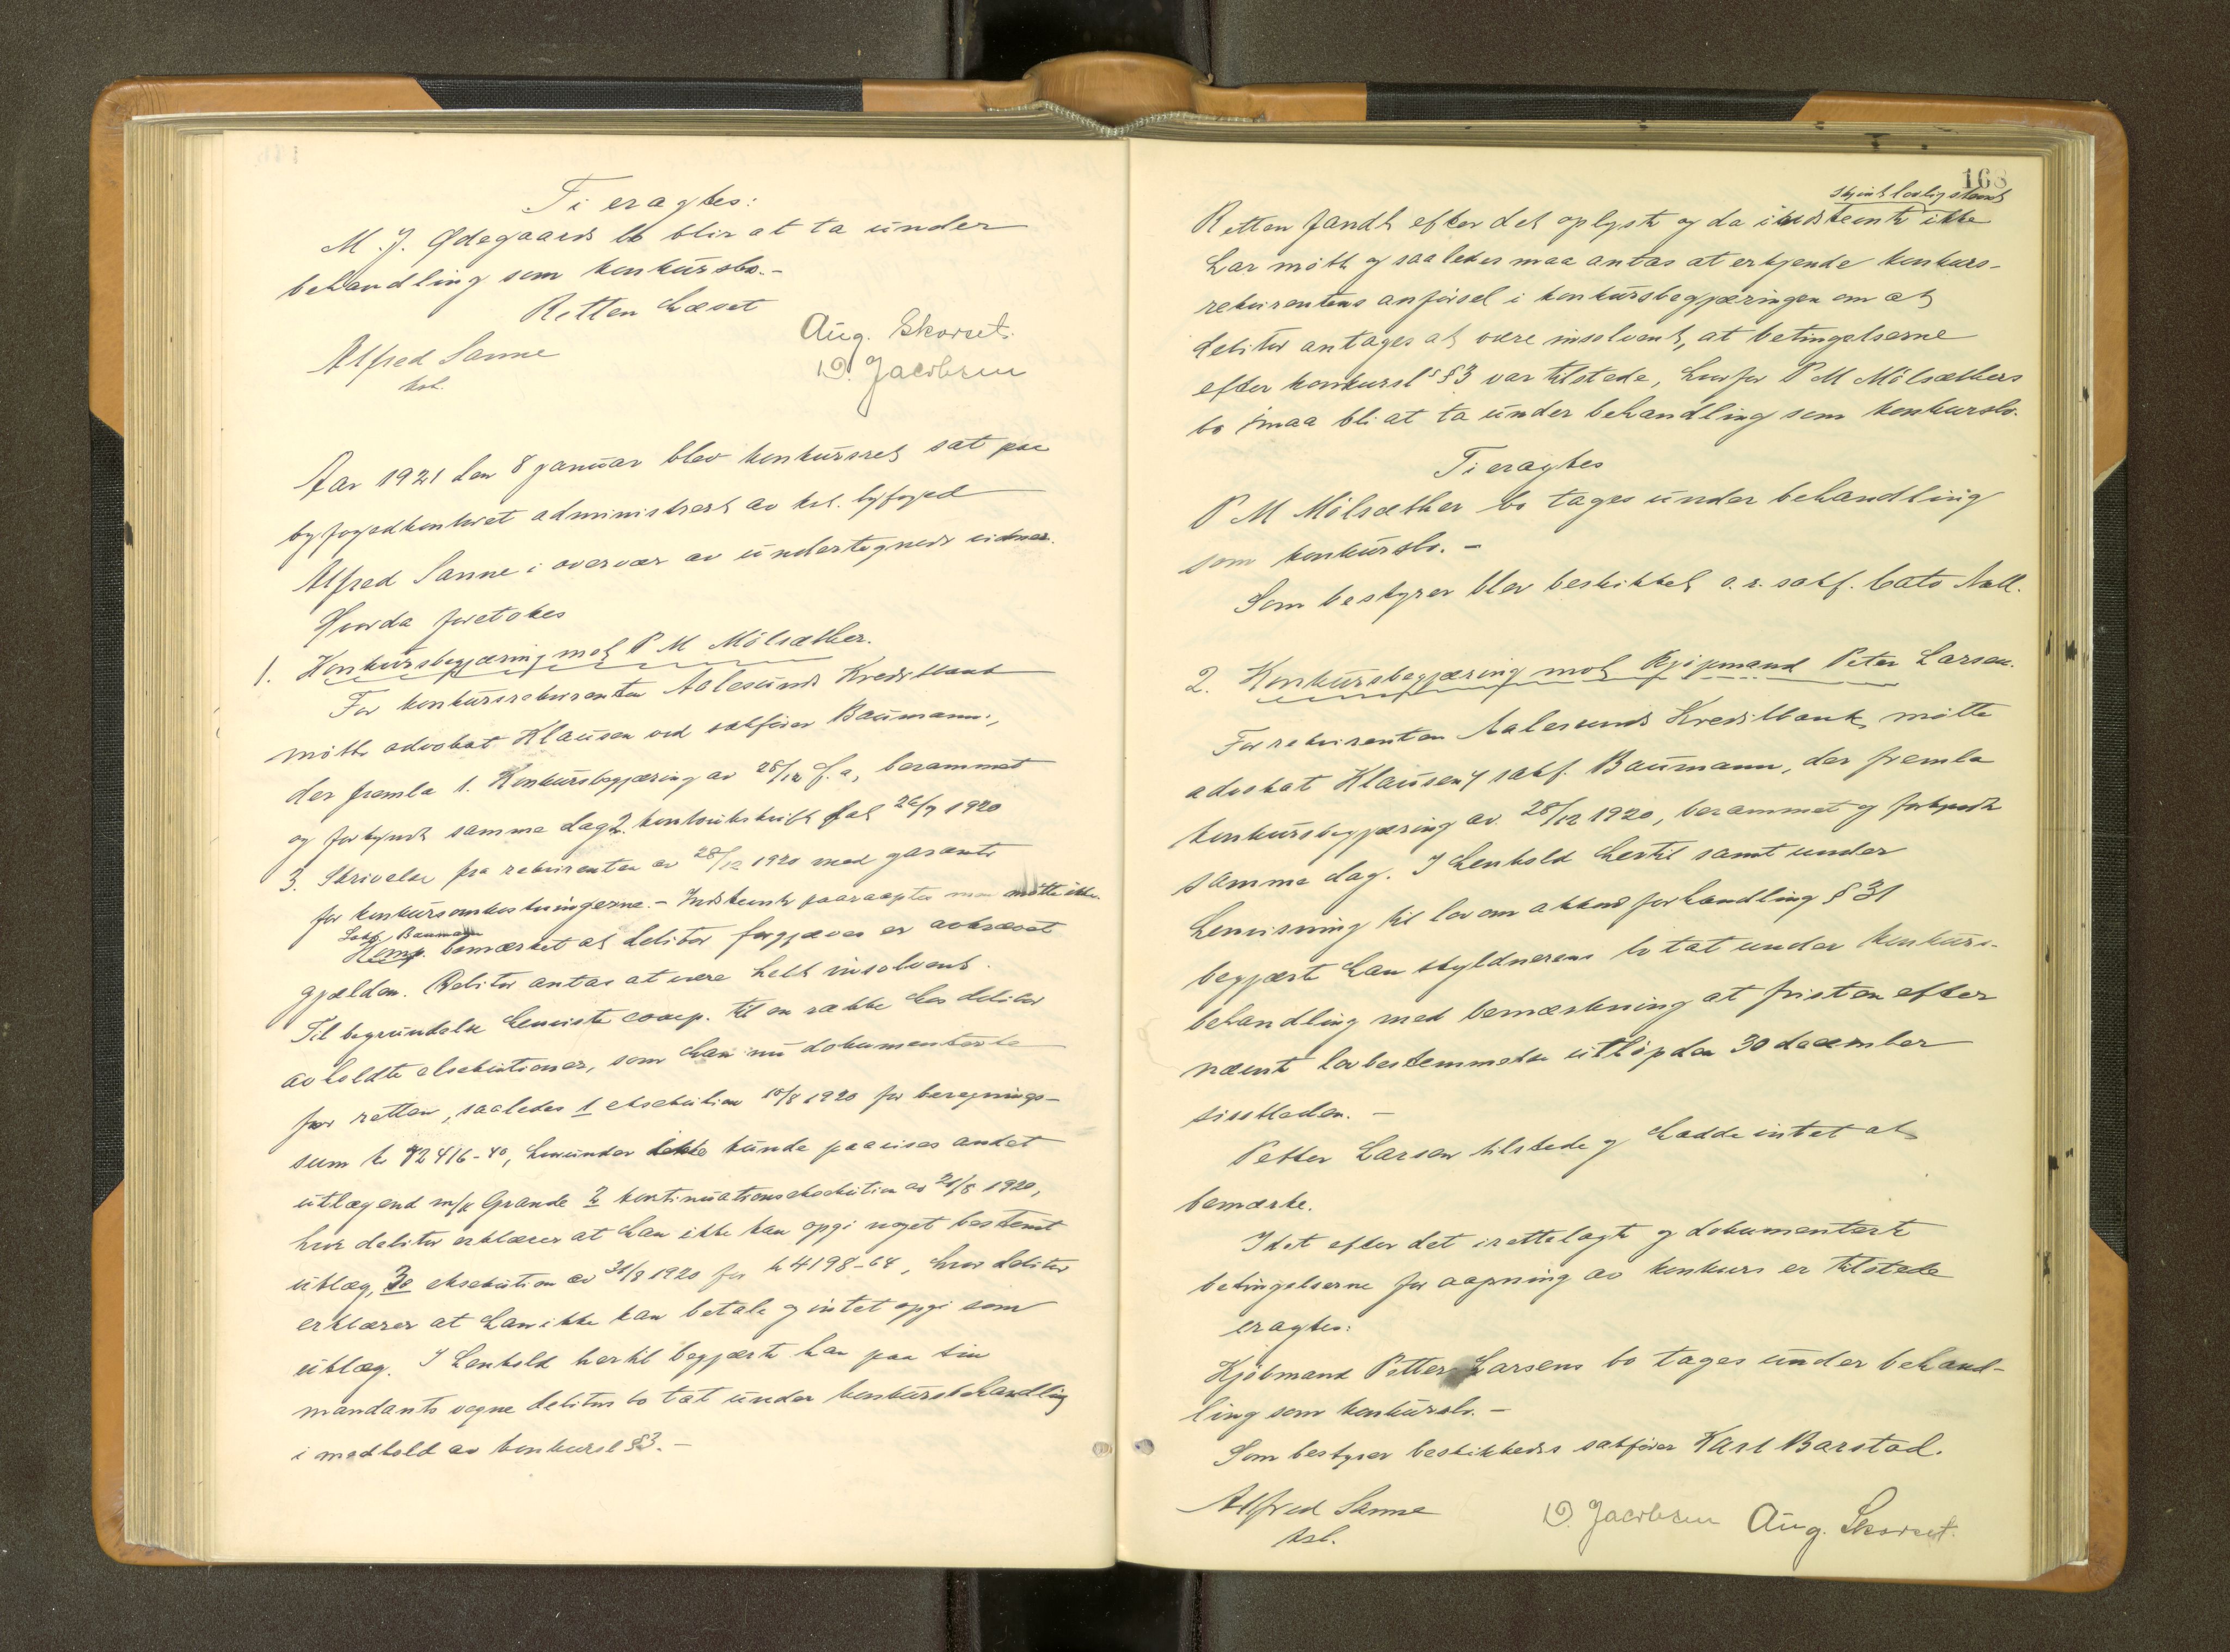 Ti eragtes:
M. J. Ødegaards bo blir at ta under
behandling som konkursbo.-
Retten hævet
Alfred Sanne
kst.
Aug. Skorset.
D. Jacobsen
Aar 1921 den 8 januar blev konkursret sat paa
byfogedkontoret administrert av kst. byfoged
Alfred Sanne i overvær av undertegnede vidner.
Hvorda foretokes
1. Konkursbegjæring mot P M Mölsæther.
For konkursrekvirenten Aalesunds Kreditbank
mötte advokat Klausen ved sakförer Baumann,
der fremla 1. Konkursbegjæring av 28/12 f. a., berammet
og forkyndt samme dag 2. kontoutskrift dat 26/7 1920
3. Skrivelse fra rekvirenten av 28/12 1920 med garanti
for konkursomkostningerne.- Indstevnte paaraaptes men mötte ikke.
Sakf. Baumann
Komp. bemærket at debitor forgjæves er avkrævet
gjælden. Debitor antas at være helt insolvent.
Til begrundelse henviste comp. til en række hos debitor
avholdte eksekutioner, som han nu dokumenterte
for retten, saaledes 1 eksekution 10/8 1920 for beregnings-
sum kr 72416-40, hvorunder ikke kunde paavises andet
utlæg end m/k Grande 2 kontinuationseksekution av 21/8 1920,
hvor debitor erklærer at han ikke kan opgi noget bestemt
utlæg, 3o eksekution av 31/8 1920 for kr 4198-64, hvor debitor
erklærer at han ikke kan betale og intet opgi som
utlæg. I henhold hertil begjærte han paa sin
mandants vegne debitors bo tat under konkursbehandling
i medhold av konkursl §3.-
168
skjönt lovlig stevnt
Retten fandt efter det oplyste og da indstevnte ikke
har mött og saaledes maa antas at erkjende konkurs-
rekvirentens anförsel i konkursbegjæringen om at
debitor antages at være insolvent, at betingelserne
efter konkursl's §3 var tilstede, hvorfor P M Mölsæthers
bo maa bli at ta under behandling som konkursbo.
Ti eragtes
P M Mölsæther bo tages under behandling
som konkursbo.-
Som bestyrer blev beskikket o.r. sakf. Cato Aall.
2. Konkursbegjæring mot Kjöpmand Peter Larsen.
For rekvirenten Aalesunds Kreditbank mötte
advokat Klausen v/ sakf. Baumann, der fremla
konkursbegjæring av 28/12 1920, berammet og forkyndt
samme dag. I henhold hertil samt under
henvisning til lov om akkordforhandling §31
begjærte han skyldnerens bo tat under konkurs-
behandling med bemærkning at fristen efter
nævnte lovbestemmelse utlöp den 30 december
sisstleden.-
Petter Larsen tilstede og hadde intet at
bemærke.
Idet efter det irettelagte og dokumenterte
betingelserne for aapning av konkurs er tilstede
eragtes:
Kjöbmand Petter Larsens bo tages under behand-
ling som konkursbo.-
Som bestyrer beskikkedes sakförer Karl Barstad.
Alfred Sanne
kst.
D. Jacobsen Aug. Skorset.